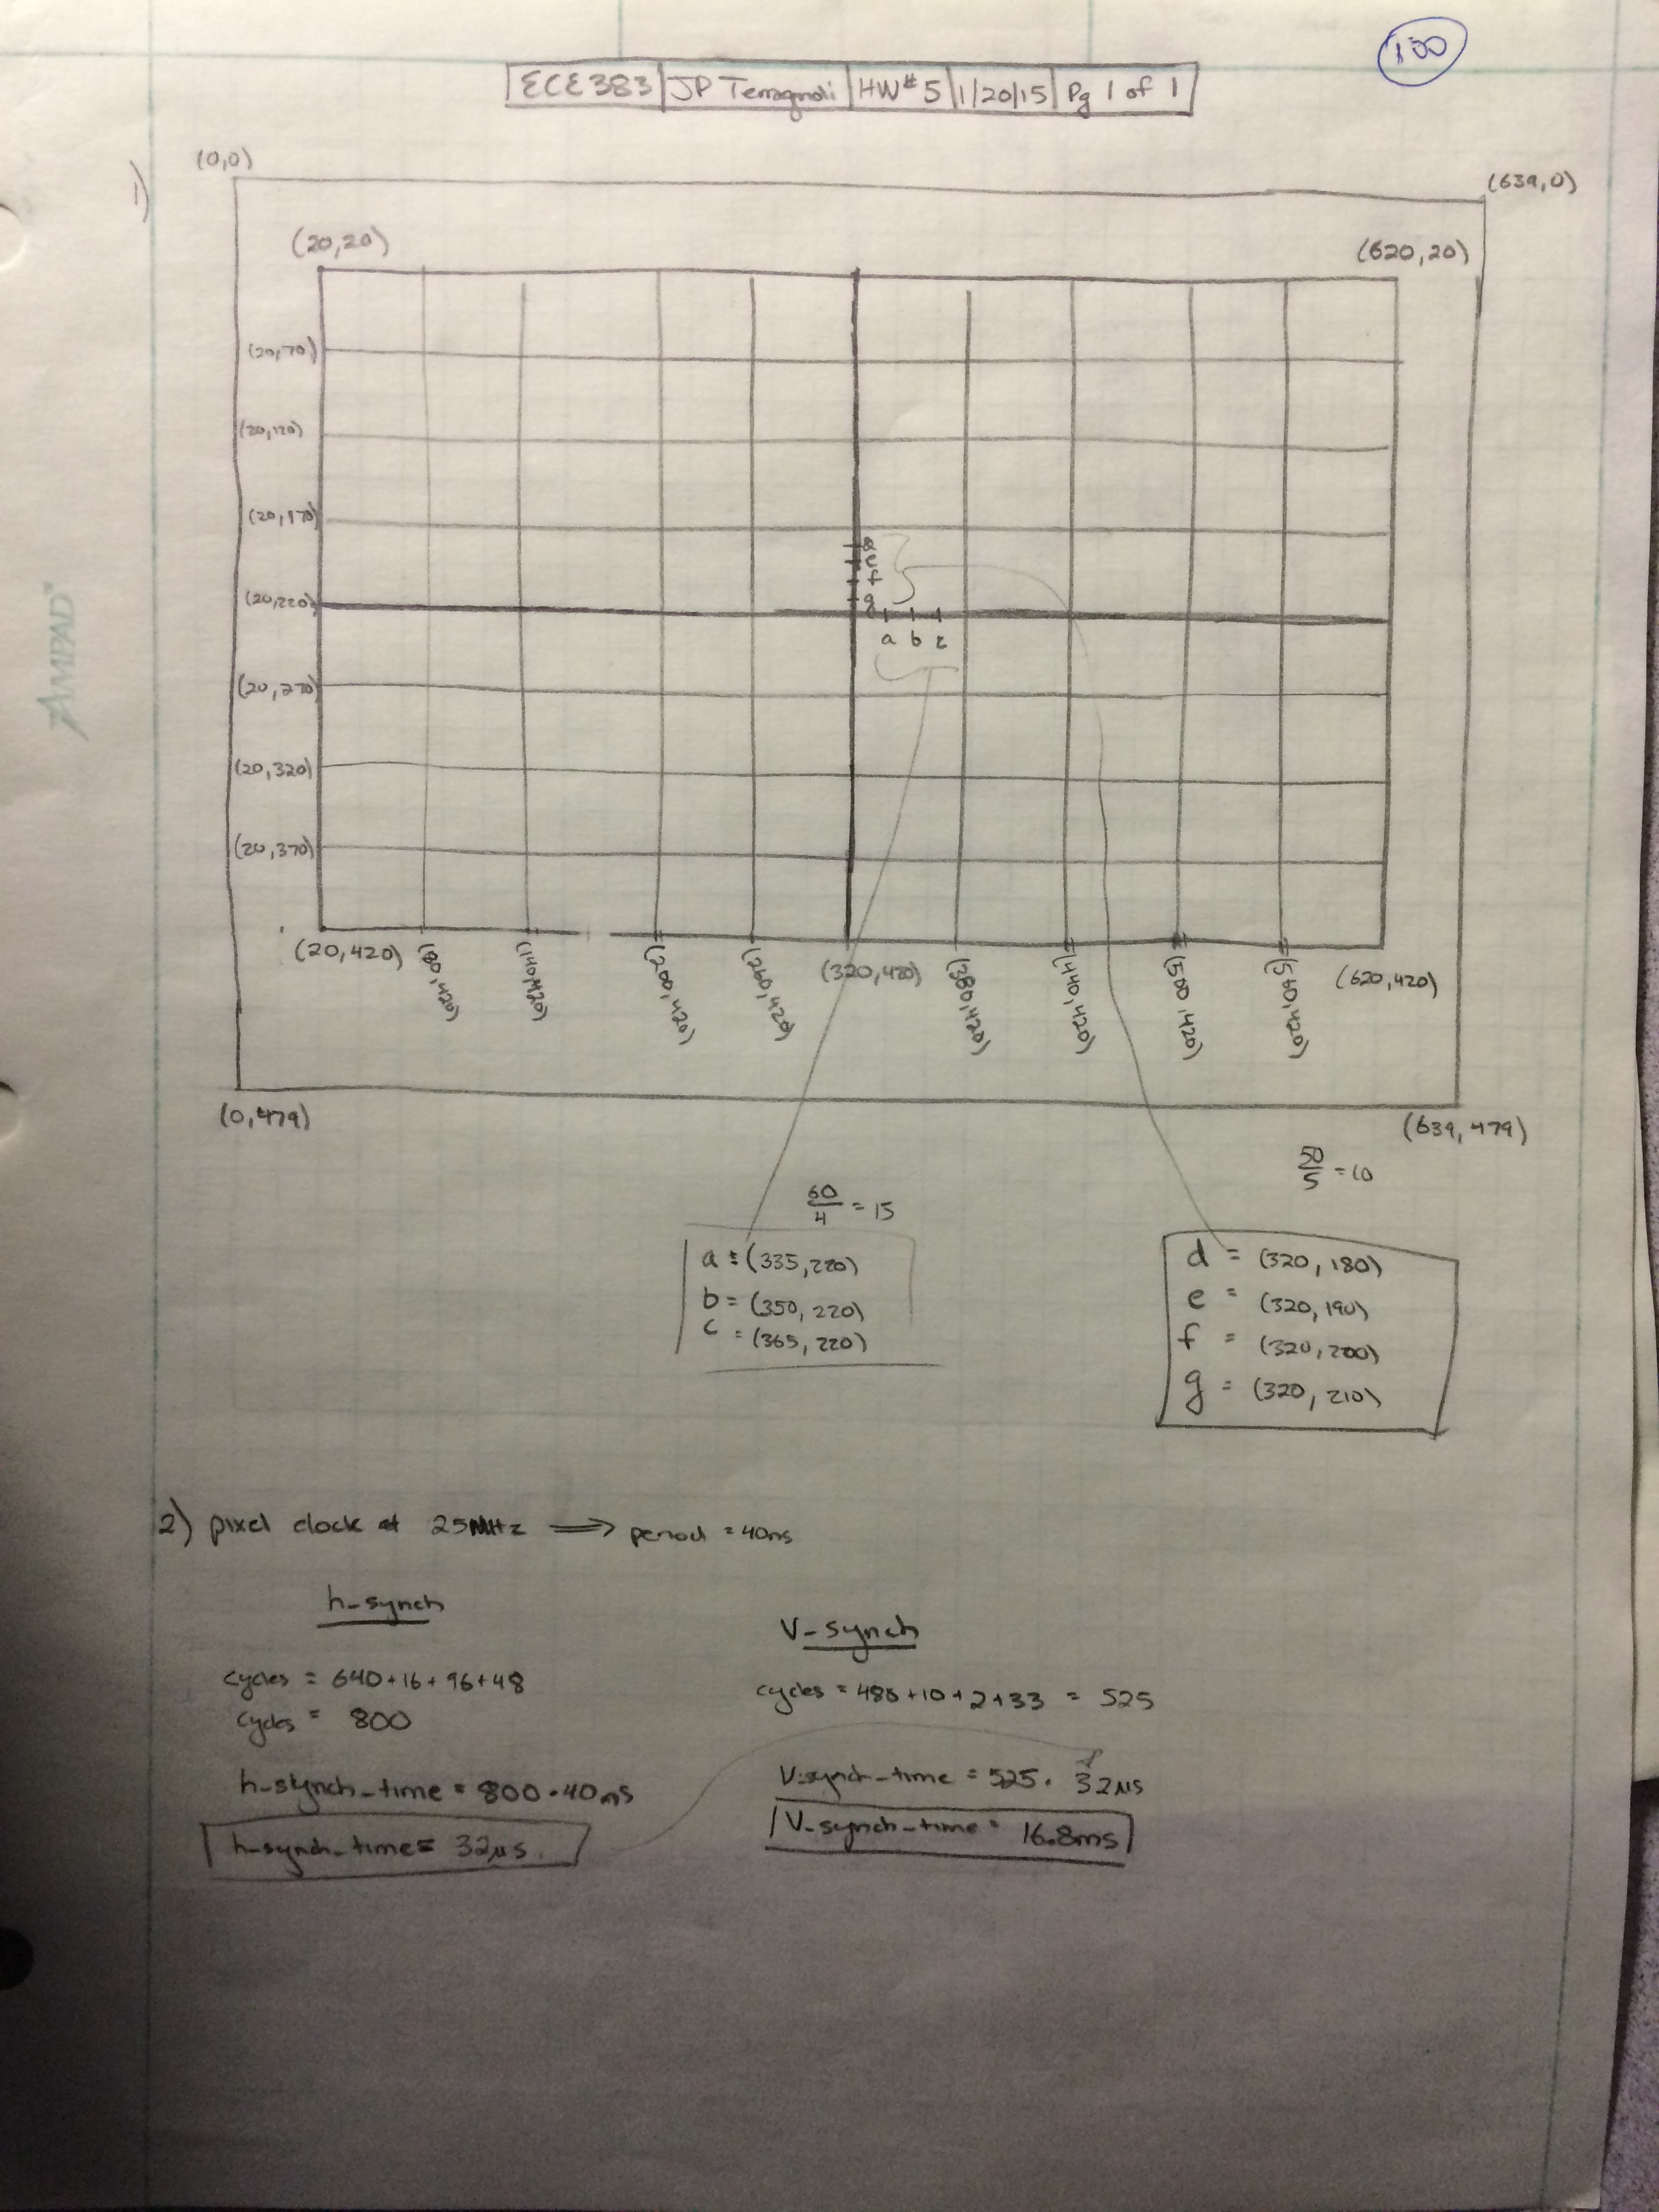 100
ECE383 JP Terragnoli HW#5 1/20/15 Pg 1 of 1
(0,0)
1)
(639,0)
(20,20)
(620,20)
(20,70)
(20,120)
(20,170)
d
e
f
(20,220)
g
a b c
(20,270)
(20,320)
(20,370)
(20,420) (80,420) (140,420) (200,420) (260,420) (320,420) (380,420) (440,420) (500,420) (560,420) (620,420)
(0,479)
(639,479)
60/4 = 15
50/5 = 10
a = (335,220)
b = (350,220)
c = (365,220)
d = (320,180)
e = (320,190)
f = (320,200)
g = (320,210)
AMPAD
2) pixel clock at 25MHz ⟹ period = 40ns
h-synch
cycles = 640+16+96+48
cycles = 800
h-synch-time = 800·40ns
h-synch-time = 32µs.
V-synch
cycles = 480+10+2+33 = 525
V-synch-time = 525· 32µs
V-synch-time = 16.8ms